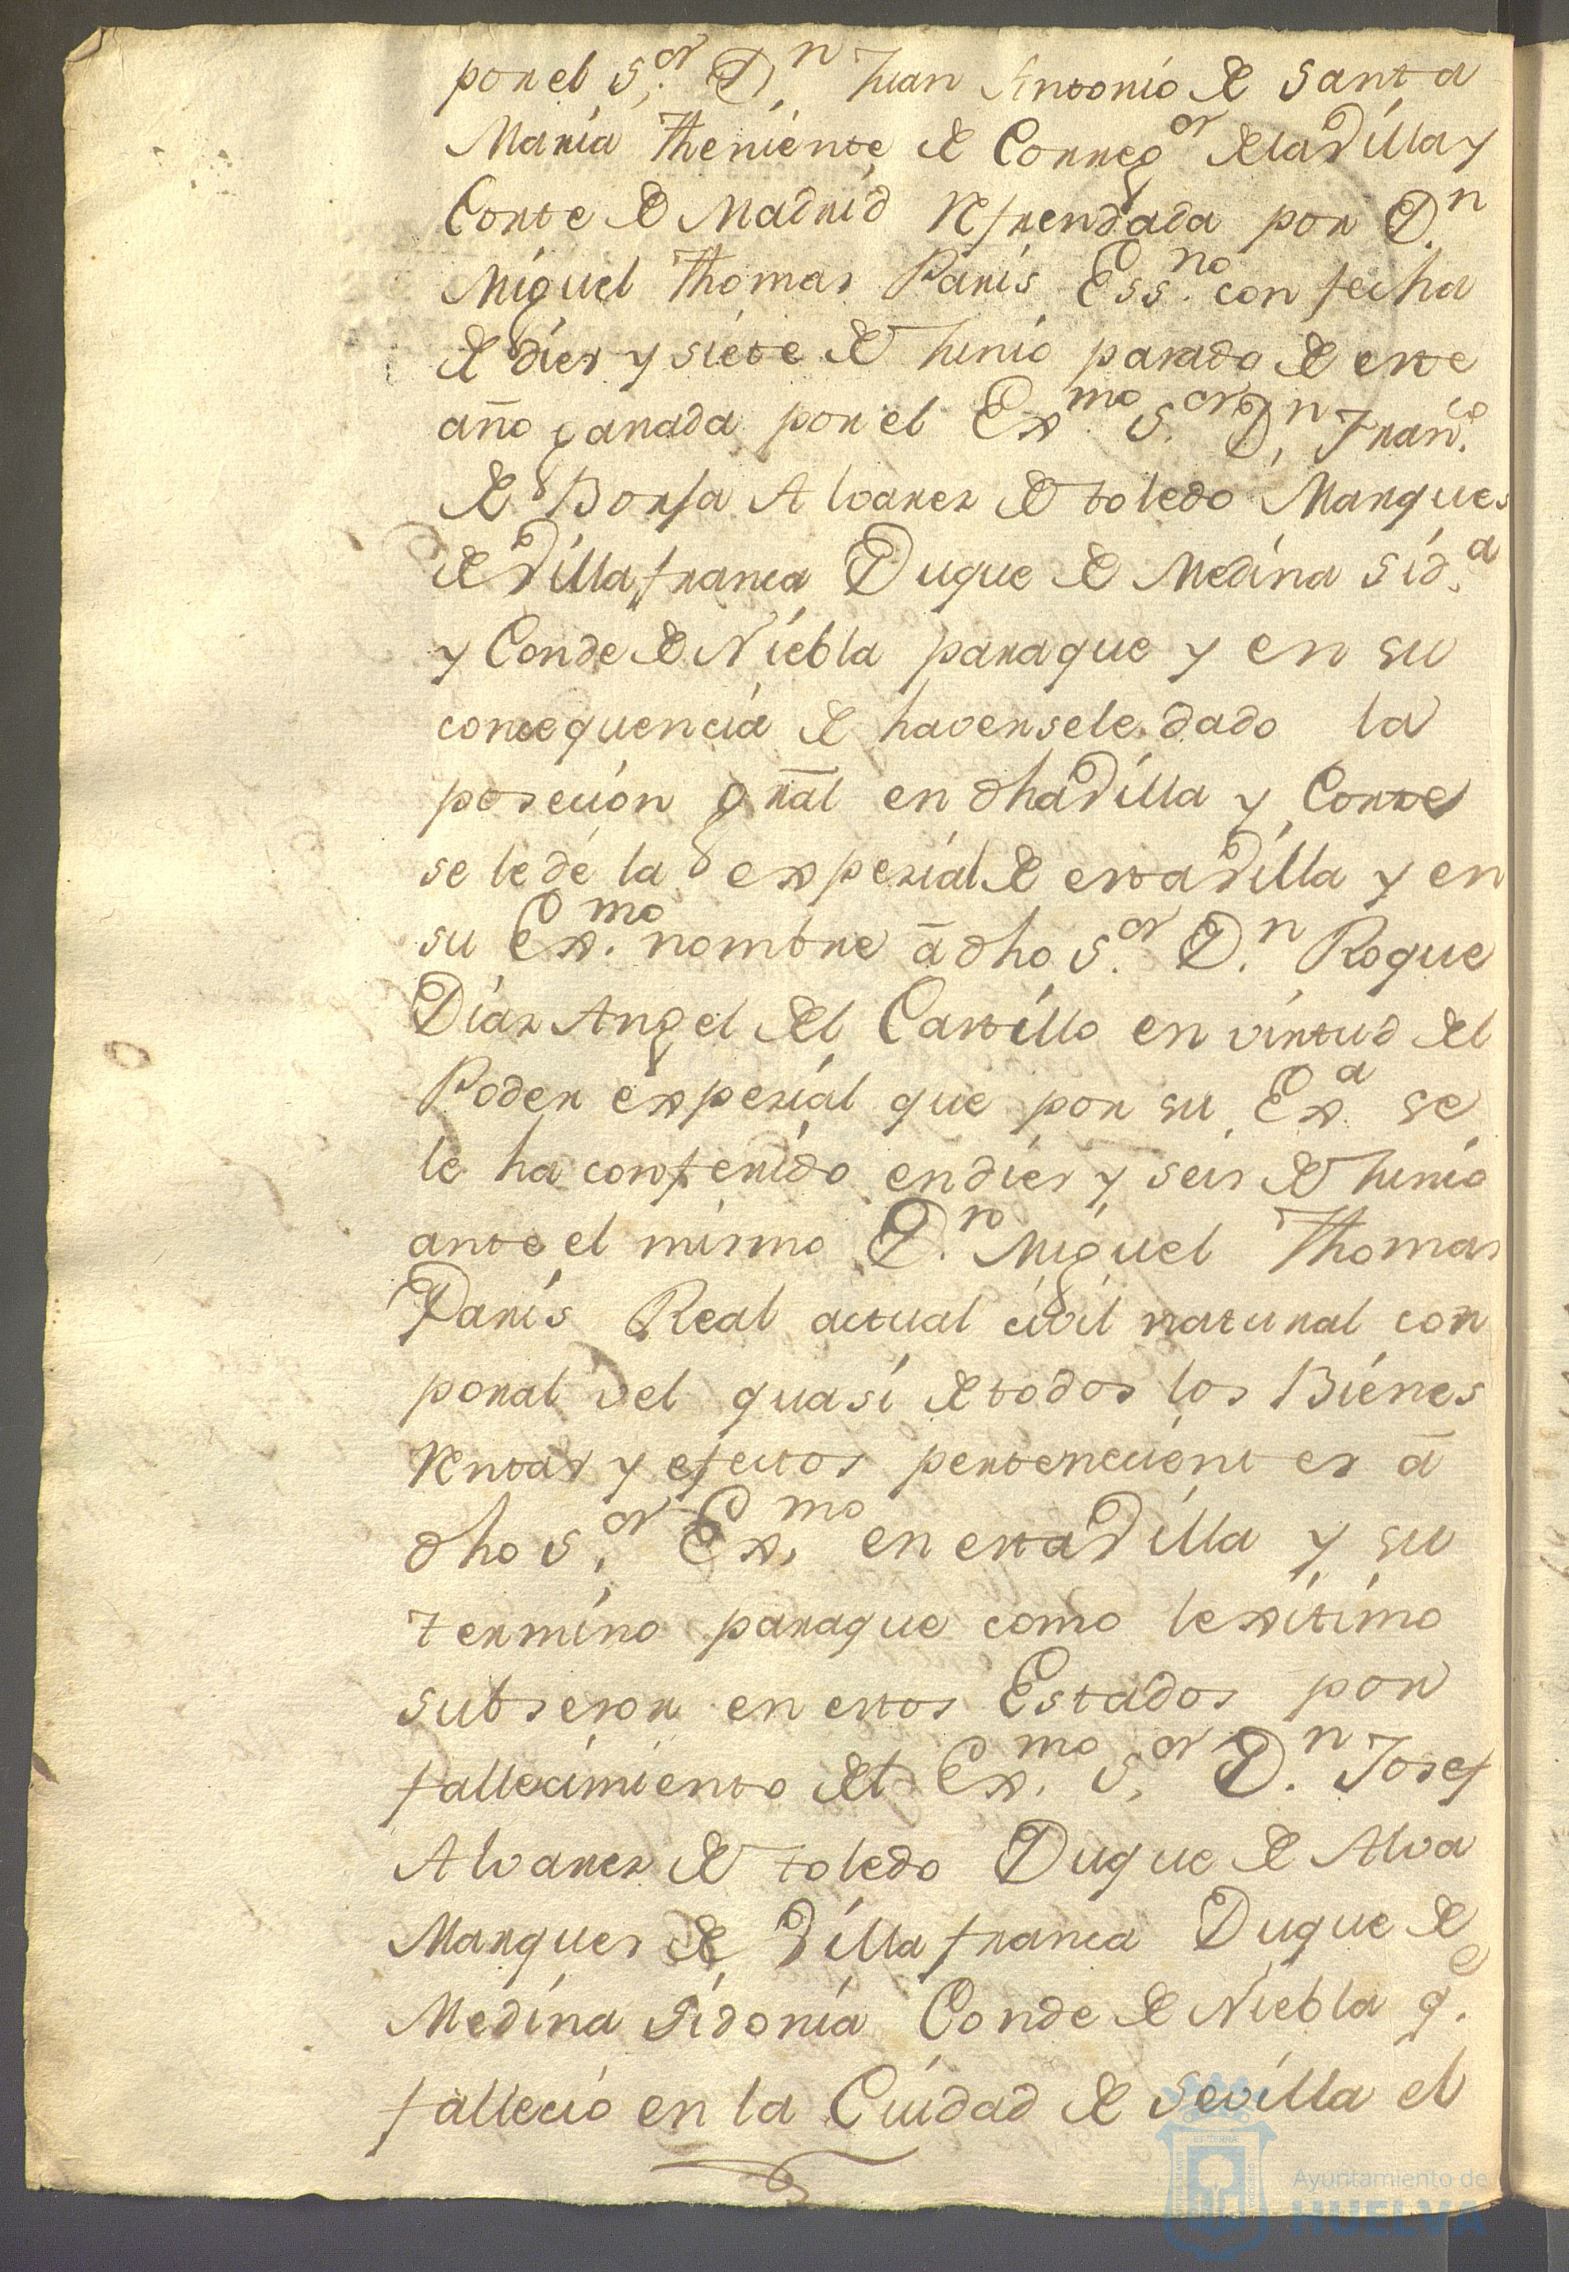 por el S.or D.n Juan Antonio de Santa
Maria Theniente de Correg.or de la Villa y
Corte de Madrid Refrendada por D.n
Miguel Thomas Paris Ess.no con fecha
de diez y siete de Junio pasado de este
año ganada por el Ex.mo S.or D.n Fran.co
de Borja Alvarez de toledo Marques
de Villafranca Duque de Medina Sid.a
y Conde de Niebla para que y en su
consequencia de haversele dado la
posecion gral en dha Villa y Corte
se le dé la expezial de esta Villa y en
su Ex.mo nombre á dho S.or D.n Roque
Diaz Angel del Castillo en virtud del
Poder expezial que por su Ex.a se
le ha conferido en diez y seis de Junio
ante el mismo D.n Miguel Thomas
Paris Real actual civil natural cor
poral vel quasi de todos los Bienes
Rentas y efectos pertenecientes á
dho S.or Ex.mo en esta Villa y su
termino para que como lexitimo
subsesor en estos Estados por
fallecimiento del Ex.mo S.or D.n Josef
Alvarez de toledo Duque de Alva
Marques de Villafranca Duque de
Medina Sidonia Conde de Niebla q.e
fallecio en la Ciudad de Sevilla el
Ayuntamiento de
HUELVA